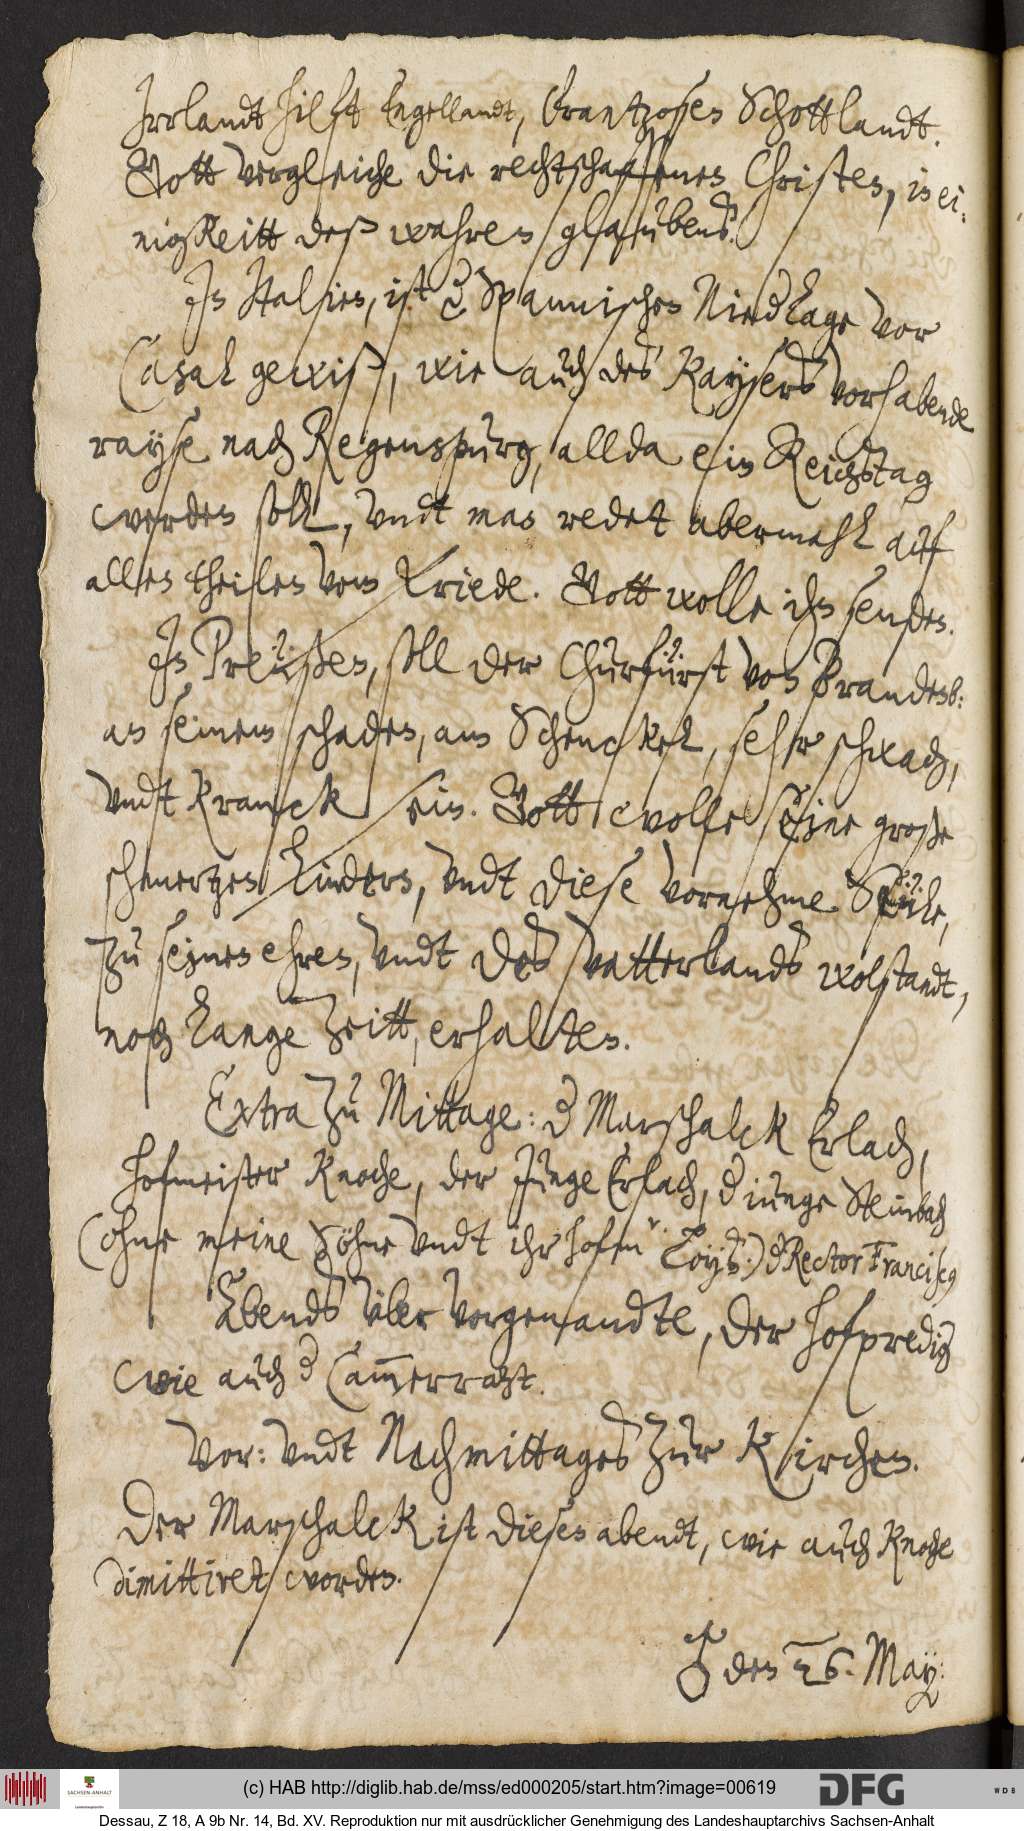 Irrlandt hilft Engellandt, Frantzosen Schottlandt.
Gott vergleiche die rechtschaffenen Christen, in ei-
nigkeitt deß wahren glaubens.
In Italien, ist der Spannischen Niederlage vor
Casal gewiß, wie auch des Kaysers vorhabende
rayse nach Regenspurg, allda ein Reichstag
werden soll, undt man redet abermahl auf
allen theilen vom Friede. Gott wolle ihn senden.
In Preüßen, soll der Churfürst von Brandenb:
an seinem schaden, am Schenckel, sehr schwach,
undt kranck sein. Gott wolle seine große
schmertzen lindern, undt diese vornehme Seüle,
zu seinen ehren, undt des vatterlands wolstandt,
noch lange zeitt, erhalten.
Extra zu Mittage: der Marschalck Erlach,
hofmeister Knoche, der Junge Erlach, der iunge Steinbach
(ohne meine Söhne undt ihr hofm Loys.) der Rector Franciscus
Abends über vorgenandte, der hofprediger
wie auch der Cam̅erraht.
Vor: undt Nachmittages zur Kirchen.
Der Marschalck ist diesen abendt, wie auch Knoche
dimittiret worden.
♂ den 26. May:
(c) HAB http://diglib.hab.de/mss/ed000205/start.htm?image=00619
SACHSEN-ANHALT
DFG
WDB
Dessau, Z 18, A 9b Nr. 14, Bd. XV. Reproduktion nur mit ausdrücklicher Genehmigung des Landeshauptarchivs Sachsen-Anhalt